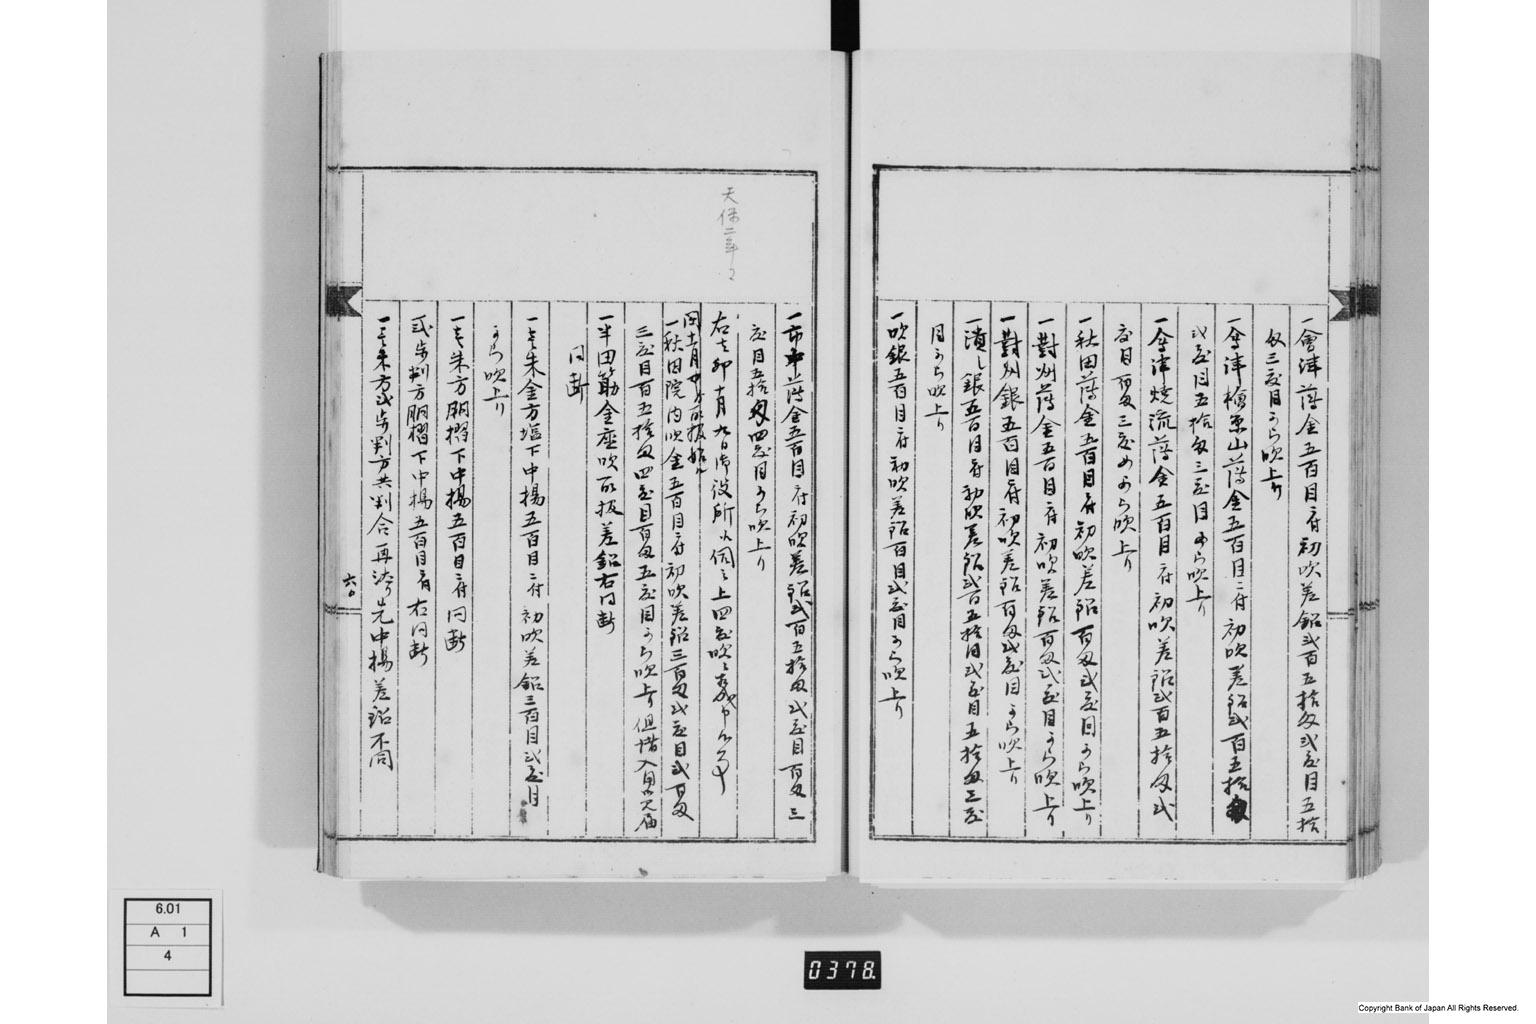 一會津薄金五百目ニ付初吹差鉛弐百五拾匁弐度目五拾
匁三度目より吹上り
一會津檜原山薄金五百目ニ付初吹差鉛弐百五拾匁
弐度目五拾匁三度目より吹上り
一會津焼流薄金五百目ニ付初吹差鉛弐百五拾匁弐
度目百匁三度めより吹上り
一秋田薄金五百目ニ付初吹差鉛百匁弐度目より吹上り
一對州薄金五百目ニ付初吹差鉛百匁弐度目より吹上り
一對州銀五百目ニ付初吹差鉛百匁弐度目より吹上り
一潰し銀五百目ニ付初吹差鉛弐百五拾目弐度目五拾匁三度
目より吹上り
一吹銀五百目ニ付初吹差鉛百目弐度目より吹上り
天保二年
一市中薄金五百目ニ付初吹差鉛弐百五拾匁弐度目百匁三
度目五拾匁四度目より吹上り
右者卯十月九日御役所伺之上四度吹
一秋田院内吹金五百目ニ付初吹差鉛三百匁弐度目弐百匁
三度目百五拾匁四度目百匁五度目より吹上り但
一半田筋金座吹灰抜差鉛右同断
同断
一壱朱金方塩下中揚五百目ニ付初吹差鉛三百目弐度目
より吹上り
一壱朱方胴摺下中揚五百目ニ付同断
一弐歩判方胴摺下中揚五百目ニ付右同断
一壱朱方弐歩判方共割合再中揚差鉛不同
六〇
6.01
A 1
4
0378.
Copyright Bank of Japan All Rights Reserved.